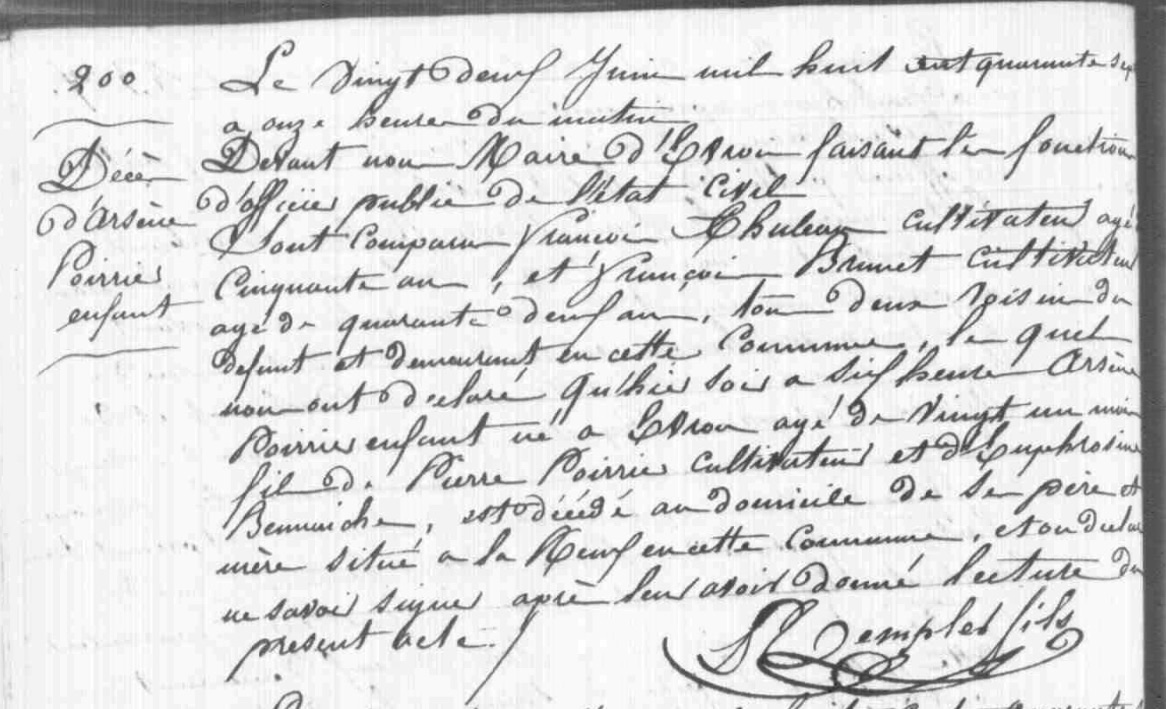 200
Décès
d'Arsène
Poirrier
enfant
Le vingt deux Juin mil huit cent quarante sept
a onze heure du matin
Devant nous Maire d'Evron faisant les fonctions
d'officier public de l'état Civil
Sont comparu François cultivateur agé
Cinquante ans, et François Brunet cultivateur
agé de quarante deux ans, tous deux voisin du
defunt et demeurant en cette Commune, les quels
nous ont declaré qu'hier soir a six heures Arsène
Poirrier enfant né a Evron agé de vingt un mois
fils de Pierre Poirrier cultivateur et d'Euphrosine
, est décédé au domicile de ses père et
mère situé a la en cette Commune, et ont declaré
ne savoir signer après leur avoir donné lecture du
present acte.
fils